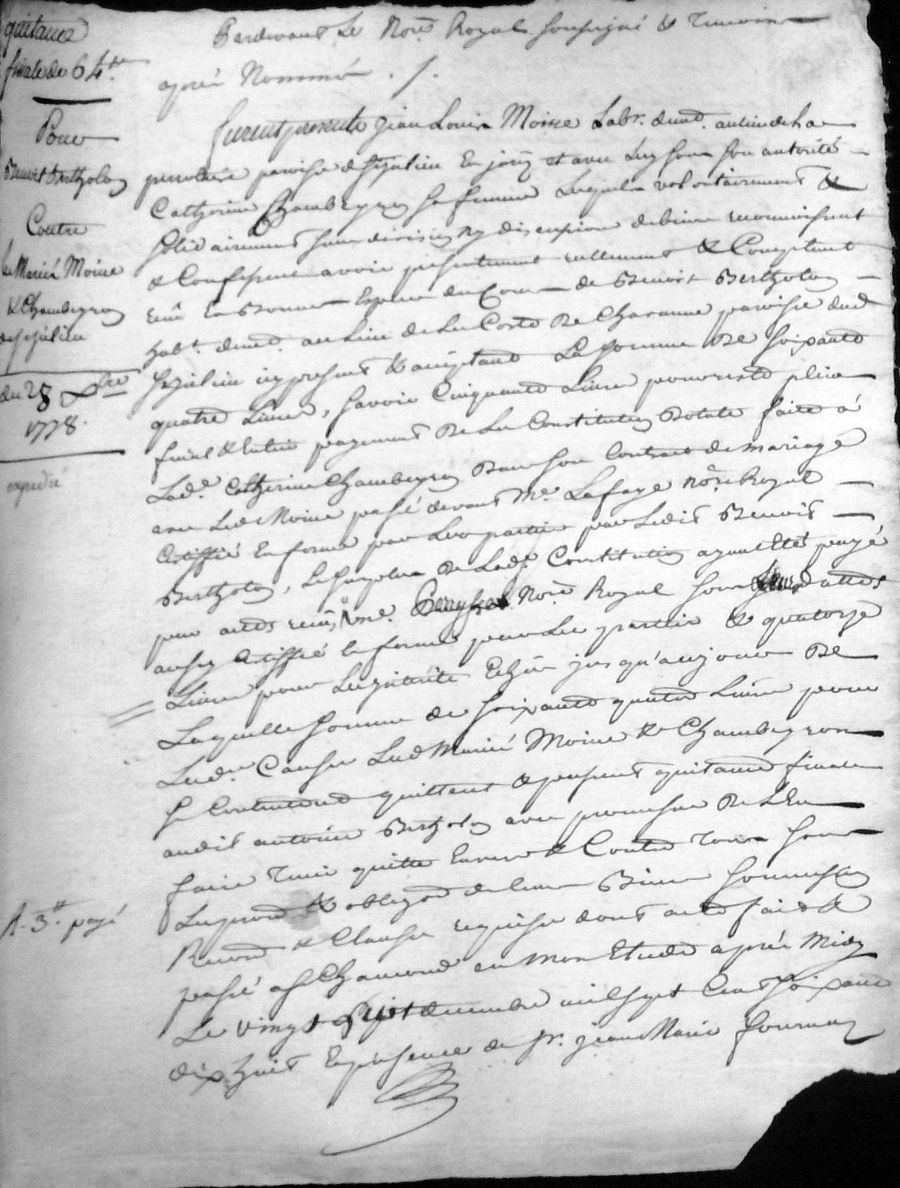 quitance
finale de 64 ₶
Pour
Benoit Bertholon
Contre
les Mariés Moine
& Chambeyron
de St Julien
du 28 Xbre
1778.
expedié
Pardevant Le Nore. Royal soussigné & Temoins
après Nommés ./.
furent presents Jean Louis Moine Labr. demt. au lieu de La
paroisse de St Julien En jarez et avec Luy sous son autorité
Catherine Chambeyron sa femme Lesquels volontairement &
solidairement sans division ny discussion de biens reconnoissent
& Confessent avoir presentement reellement & Comptant
reçû En Bonnes Especes du Cours de Benoit Bertholon
habt. demt. au Lieu de La Coste De Chavanne paroisse dud
St Julien icy present & acceptant La somme De soixante
quatre Livres, savoir Cinquante Livres pour reste plein
final & Entier payement De La Constitution Dotale faite à
Lade. Catherine Chambeyron Dans son Contract de Mariage
avec Led Moine passé devant Me. Lafaye nore. Royal
Certiffié En forme par Les parties par Ledit Benoit
Bertholon, Le surplus De Lade. Constitution ayant Eté payé
par actes reçus Me. Nore. Royal sous Leurs dattes
aussy Certiffié En forme par Les parties & quatorze
Livres pour Les interêts Echus jusqu'aujourd. De
Laquelle somme de soixante quatre Livres pour
Lesd. Causes Lesd Mariés Moine & Chambeyron
se Contentent quittent & passent quitance finale
audit antoine Bertholon avec promesse De L'En
faire Tenir quitte Envers & Contre Tous sous
Les peines & obligaons de leurs Biens soumission
Renonon & Clauses requises dont acte fait &
passé a St Chamond en mon Etude après Midy
Le vingt huit decembre mil sept Cent soixante
dix huit En presence de Sr. jean Marie fournas
R. 3 ₶ payé